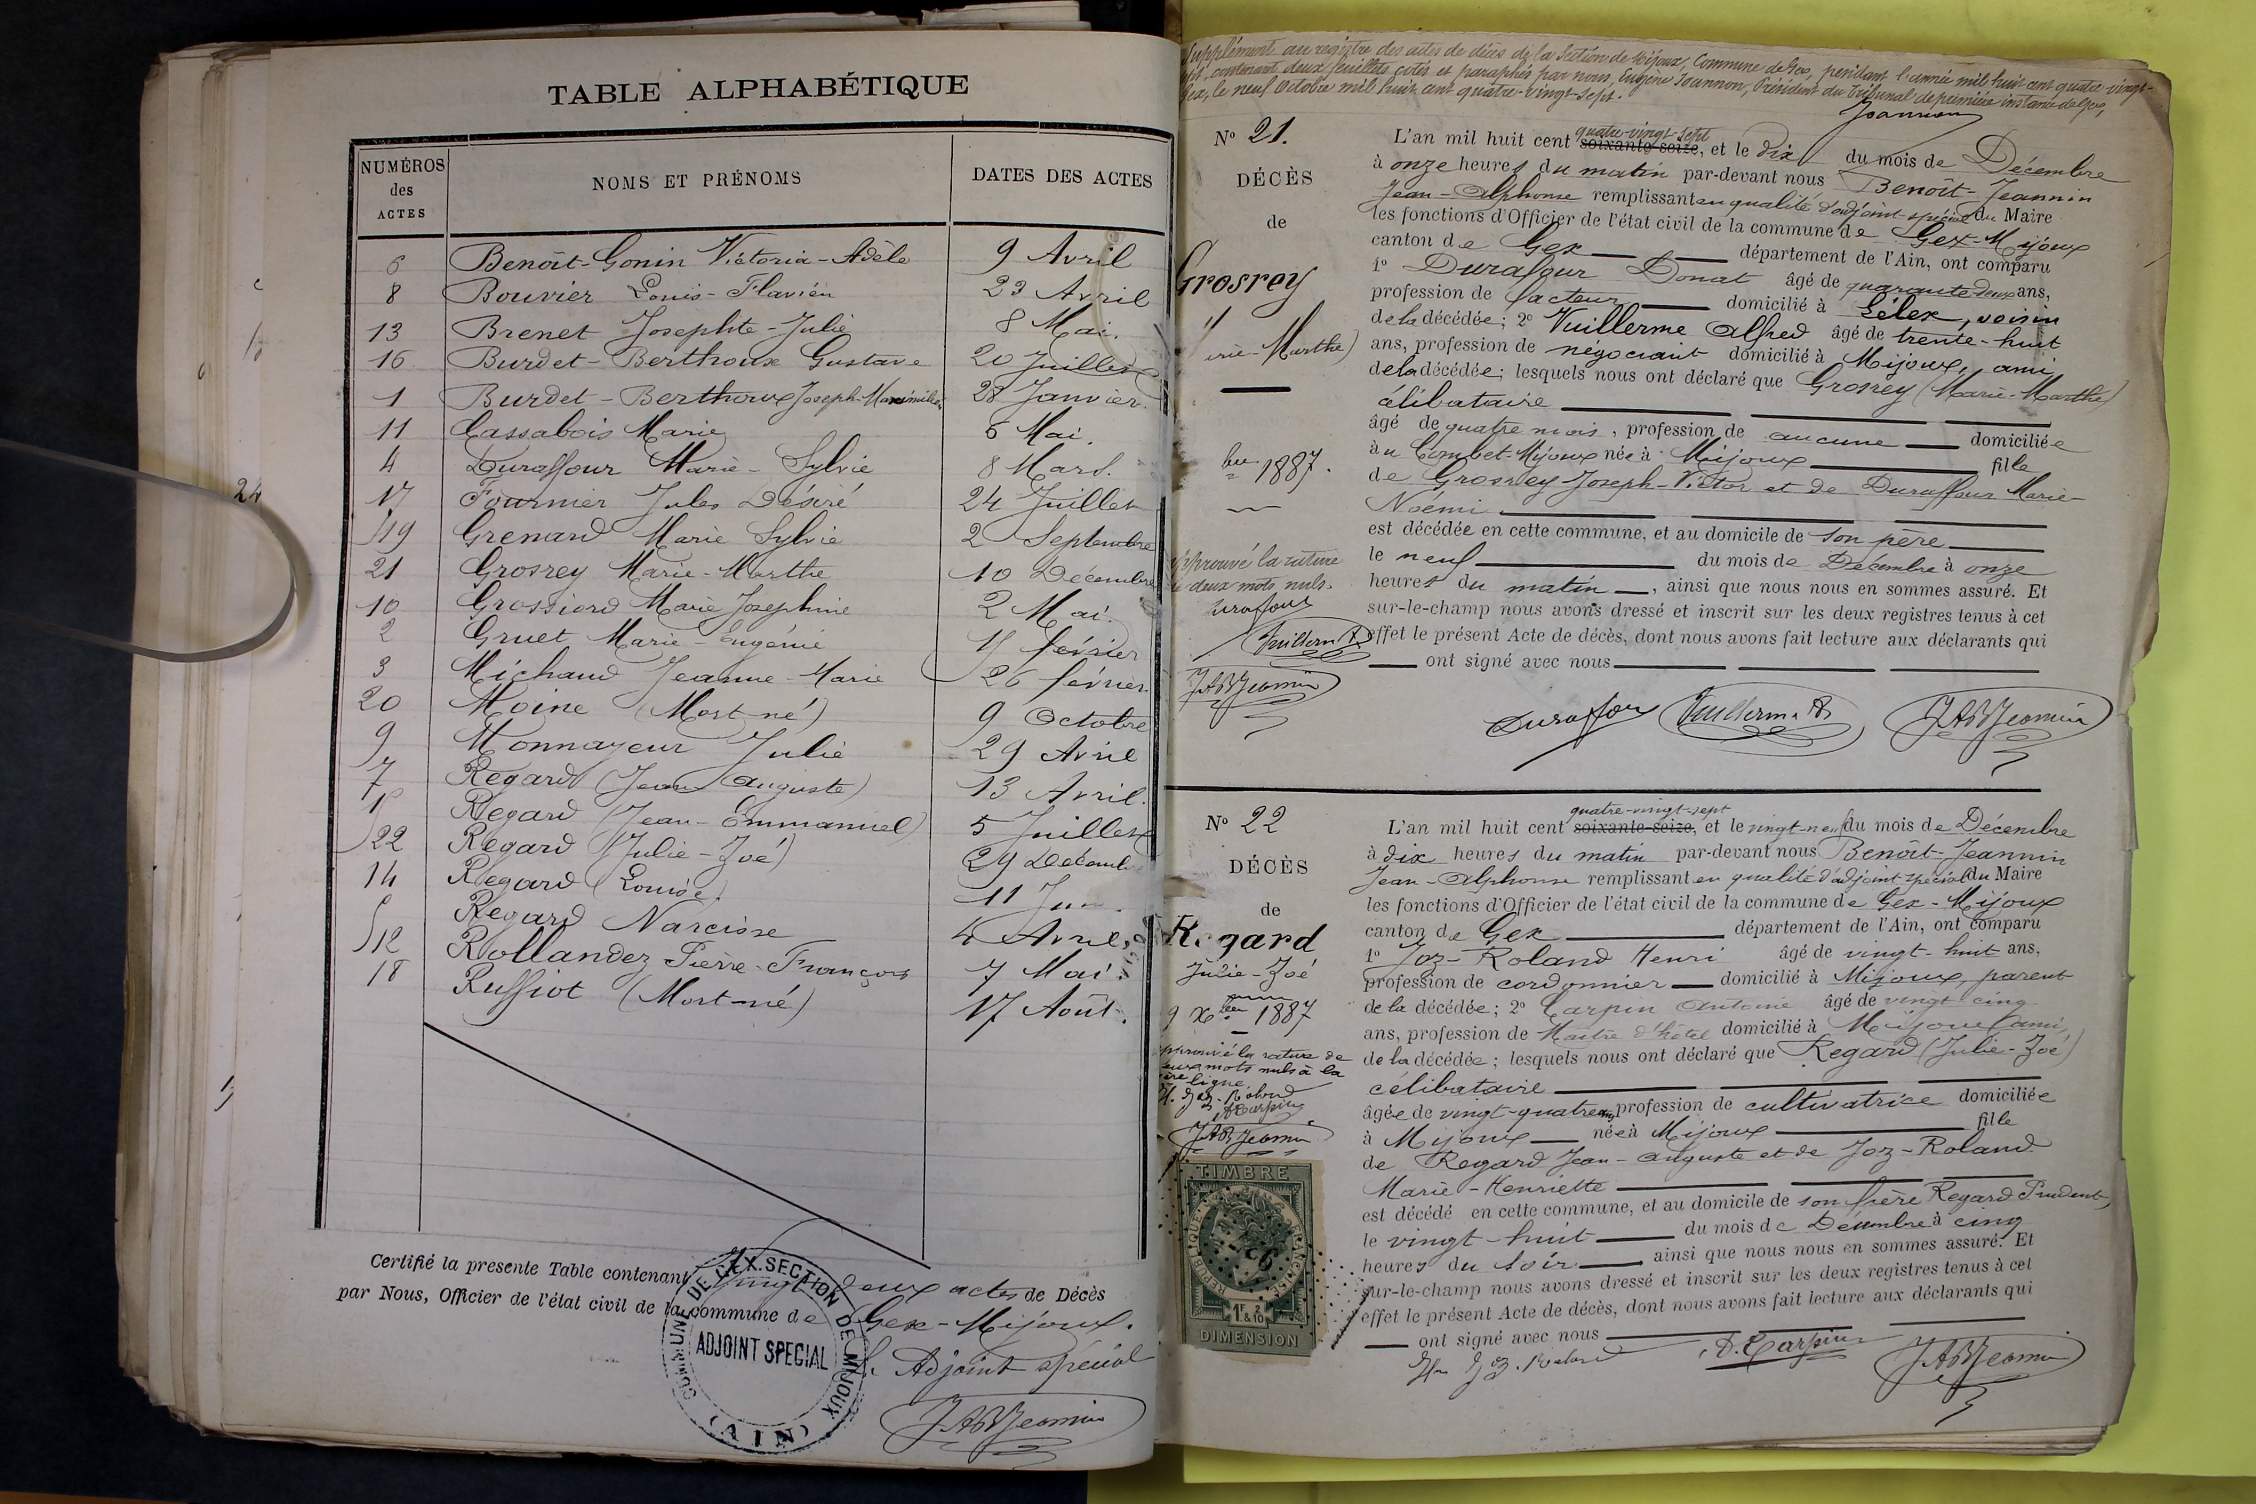 TABLE ALPHABÉTIQUE
NUMÉROS des ACTES NOMS ET PRÉNOMS DATES DES ACTES
6 Benoît-Gonin Victoria-Adèle 9 Avril
8 Bouvier Louis-Flavien 23 Avril
13 Brenet Josephte-Julie 8 Mai.
16 Burdet-Berthoux Gustave 20 Juillet
1 Burdet-Berthoux Joseph-Maximilien 28 Janvier.
11 Cassabois Marie 6 Mai.
4 Duraffour Marie-Sylvie 8 Mars.
17 Fournier Jules Désiré 24 Juillet
19 Grenard Marie Sylvie 2 Septembre
21 Grosrey Marie-Marthe 10 Décembre
10 Grossiord Marie Josephine 2 Mai.
2 Gruet Marie-Eugénie février
3 Michaud Jeanne-Marie 26 février
20 Moine (Mort-né) 9 Octobre
9 Monnayeur Julie 29 Avril
7 Regard (Jean Auguste) 13 Avril.
Regard (Jean-Emmanuel) 5 Juillet
22 Regard (Julie-Zoé) 29 Décemb
14 Regard (Louise) 11 Jun
Regard Narcisse 4 Avril,
12 Rollandez Pierre-François 7 Mai.
18 Ruffiot (Mort-né) 17 Août.
Certifié la presente Table contenant Vingt deux actes de Décès
par Nous, Officier de l'état civil de la commune de Gex-Mijoux.
L'Adjoint spécial
JABJeannin
COMMUNE DE GEX. SECTION DE MIJOUX
ADJOINT SPECIAL
(AIN)
24
Supplément au registre des actes de décès de la Section de Mijoux, Commune de Gex, pendant l'année mil huit cent quatre vingt-
sept, contenant deux feuillets cotés et paraphés par nous, Eugène Joannon, Président du Tribunal de première instance de Gex,
Gex, le neuf Octobre mil huit cent quatre-vingt-sept.
Joannon
N° 21.
DÉCÈS
de
Grosrey
rie-Marthe)
bre 1887.
approuvé la rature
deux mots nuls.
Duraffour
Vuillerm A
JABJeannin
quatre-vingt-sept
L'an mil huit cent soixante-seize, et le dix du mois de Décembre
à onze heures du matin par-devant nous Benoît-Jeannin
Jean-Alphonse remplissant en qualité d'adjoint-spécial du Maire
les fonctions d'Officier de l'état civil de la commune de Gex-Mijoux
canton de Gex département de l'Ain, ont comparu
1° Duraffour Donat âgé de quarante deux ans,
profession de facteur domicilié à Lélex, voisin
de la décédée; 2° Vuillerme Alfred âgé de trente-huit
ans, profession de négociant domicilié à Mijoux, ami
de la décédée; lesquels nous ont déclaré que Grosrey (Marie-Marthe)
célibataire
âgé de quatre mois, profession de aucune domiciliée
au Combet-Mijoux née à Mijoux fille
de Grosrey Joseph-Victor et de Duraffour Marie-
Noémi
est décédée en cette commune, et au domicile de son père
le neuf du mois de Décembre à onze
heures du matin, ainsi que nous nous en sommes assuré. Et
sur-le-champ nous avons dressé et inscrit sur les deux registres tenus à cet
effet le présent Acte de décès, dont nous avons fait lecture aux déclarants qui
ont signé avec nous
Duraffour Vuillerm A JABJeannin
N° 22
DÉCÈS
de
Regard
Julie-Zoé
9 Xbre 1887
approuvé la rature de
deux mots nuls à la
ère ligne.
H. Joz-Roland
A Carpin
JABJeannin
TIMBRE
REPUBLIQUE FRANÇAISE
1F. 2/10
DIMENSION
quatre-vingt-sept
L'an mil huit cent soixante-seize, et le vingt-neuf du mois de Décembre
à dix heures du matin par-devant nous Benoît-Jeannin
Jean-Alphonse remplissant en qualité d'adjoint spécial du Maire
les fonctions d'Officier de l'état civil de la commune de Gex-Mijoux
canton de Gex département de l'Ain, ont comparu
1° Joz-Roland Henri âgé de vingt-huit ans,
profession de cordonnier domicilié à Mijoux, parent
de la décédée; 2° Carpin Antoine âgé de vingt cinq
ans, profession de Maître d'hôtel domicilié à Mijoux, ami
de la décédée; lesquels nous ont déclaré que Regard (Julie-Zoé)
célibataire
âgée de vingt-quatre ans profession de cultivatrice domiciliée
à Mijoux née à Mijoux fille
de Regard Jean-Auguste et de Joz-Roland
Marie-Henriette
est décédé en cette commune, et au domicile de son frère Regard Prudent,
le vingt-huit du mois de Décembre à cinq
heures du soir, ainsi que nous nous en sommes assuré. Et
sur-le-champ nous avons dressé et inscrit sur les deux registres tenus à cet
effet le présent Acte de décès, dont nous avons fait lecture aux déclarants qui
ont signé avec nous
Hri Joz-Roland A. Carpin JABJeannin